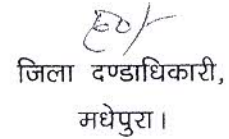 ह0/-
जिला दण्डाधिकारी,
मधेपुरा।